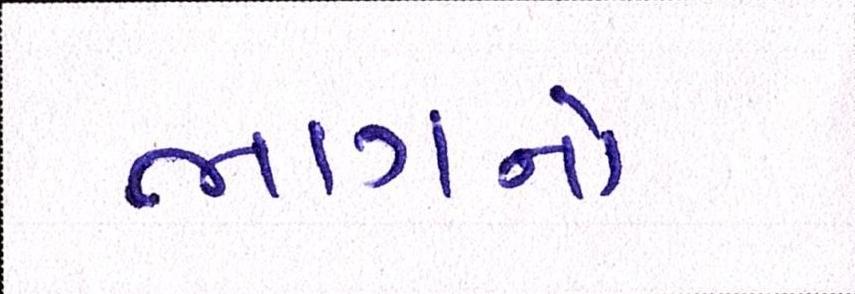 ભાગનો